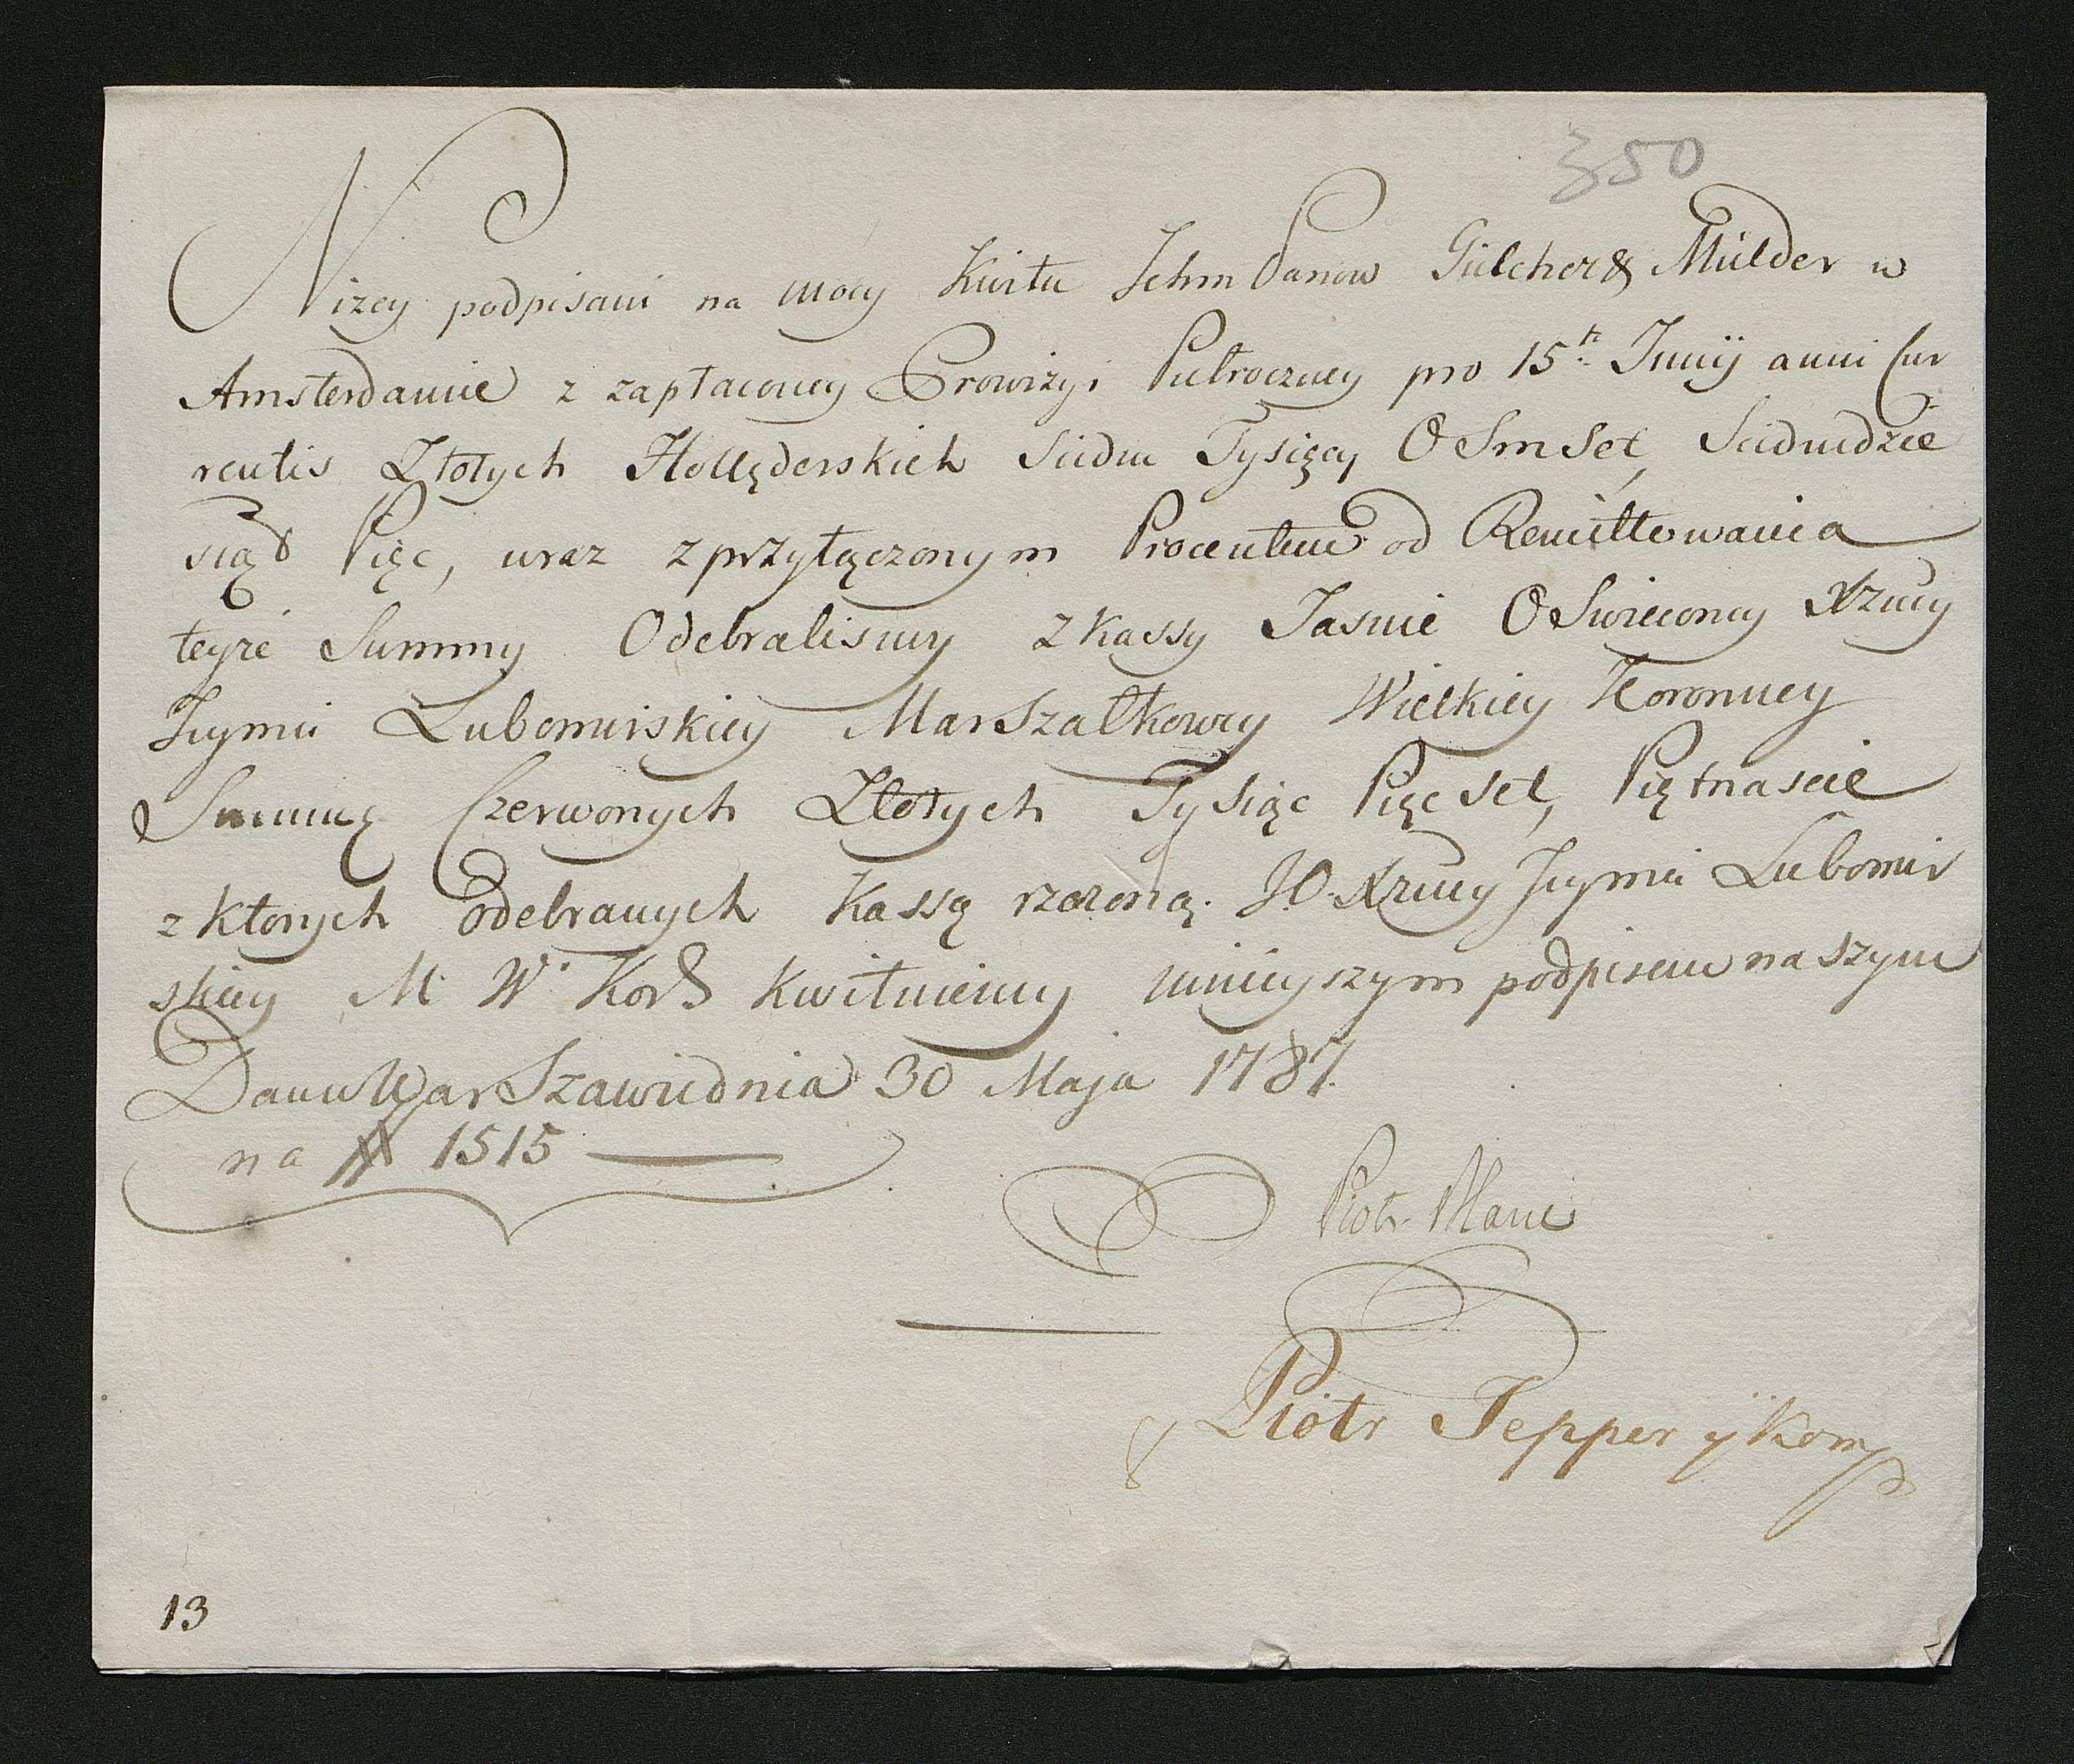 350
Niżey podpisani na mocy Kwitu Ichm Panow Gülcher & Mülder w
Amsterdamie z zapłaconey Prowizyi Pułroczney pro 15ta Junij anni Cur
rentis Złotych Hollęderskich Siedm Tysięcy OSmSet, Siedmdzie
siąt Pięc, wraz z przyłączonym Procentem od Remittowania
teyże Summy Odebralismy z Kassy Jasnie OSwieconey Xzney
Jeymci Lubomirskiey MarSzałkowey Wielkiey Koronney
Summę Czerwonych Złotych TySiąc PięcSet, Piętnascie
z ktorych odebranych Kassę rzeczoną. J.O. Xzney Jeymci Lubomir
skiey M W. Kor: Kwituiemy ninieyszym podpisem naszym
Dan w WarSzawie dnia 30 Maja 1787.
na # 1515
Piotr Blanc
Piotr Tepper y Komp
13